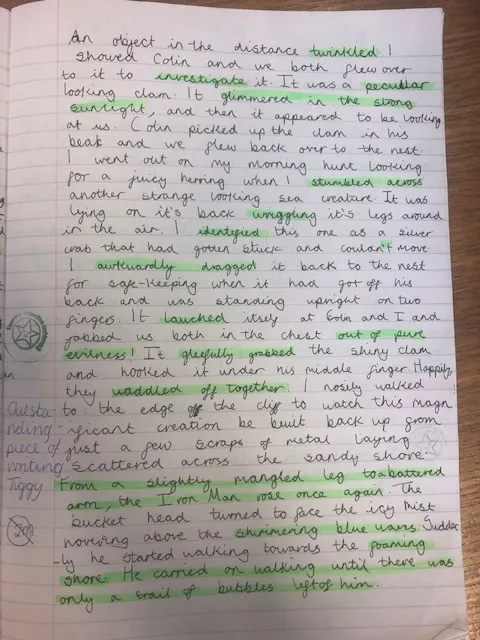 An object in the distance twinkled. I
showed Colin and we both flew over
to it to investigate it. It was a peculiar
looking clam. It glimmered in the strong
sunlight, and then it appeared to be looking
at us. Colin picked up the clam in his
beak and we flew back over to the nest.
I went out on my morning hunt looking
for a juicy herring when I stumbled across
another strange looking sea creature. It was
lying on it's back wriggling it's legs around
in the air. I identified this one as a silver
crab that had gotten stuck and couldn't move.
I awkwardly dragged it back to the nest
for safe-keeping when it had got off his
back and was standing upright on two
fingers. It lauched itsely at Colin and I and
jabbed us both in the chest out of pure
evilness! It gleefully grabbed the shiny clam
and hooked it under his middle finger. Happily,
they waddled off together. I nosily walked
to the edge of the cliff to watch this magn
-ificant creation be built back up from
just a few scraps of metal laying
scattered across the sandy shore.
From a slightly mangled leg to a battered
arm, the Iron Man rose once again. The
bucket head turned to face the icy mist
hovering above the shimmering blue waves. Sudden
-ly he started walking towards the foaming
shore. He carried on walking until there was
only a trail of bubbles left of him.
Outsta
nding
piece of
writing
Tiggy